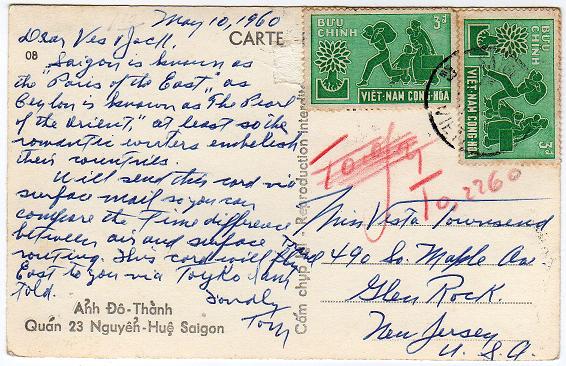 May 10, 1960
CARTE
08
Dear Ves & Jack.
Saigon is known as
the "Paris of the East," as
Ceylon is known as The Pearl
of the Orient," at least so the
romantic writers embelesh
their countries.
Will send this card via
surface mail so you can
compare the time difference
between air and surface
routing. This card will
East to you via Toyko I am
told.
Fondly
Tom
Ảnh Đô-Thành
Quán 23 Nguyễn-Huệ Saigon
Cấm chụp lại - Reproduction interdite
BƯU CHÍNH
3đ
VIỆT-NAM CỘNG-HÒA
BƯU CHÍNH
3đ
VIỆT-NAM CỘNG-HÒA
To, 2260
Miss Vesta Townsend
490 So. Maple Ave
Glen Rock.
New Jersey
U. S. A.